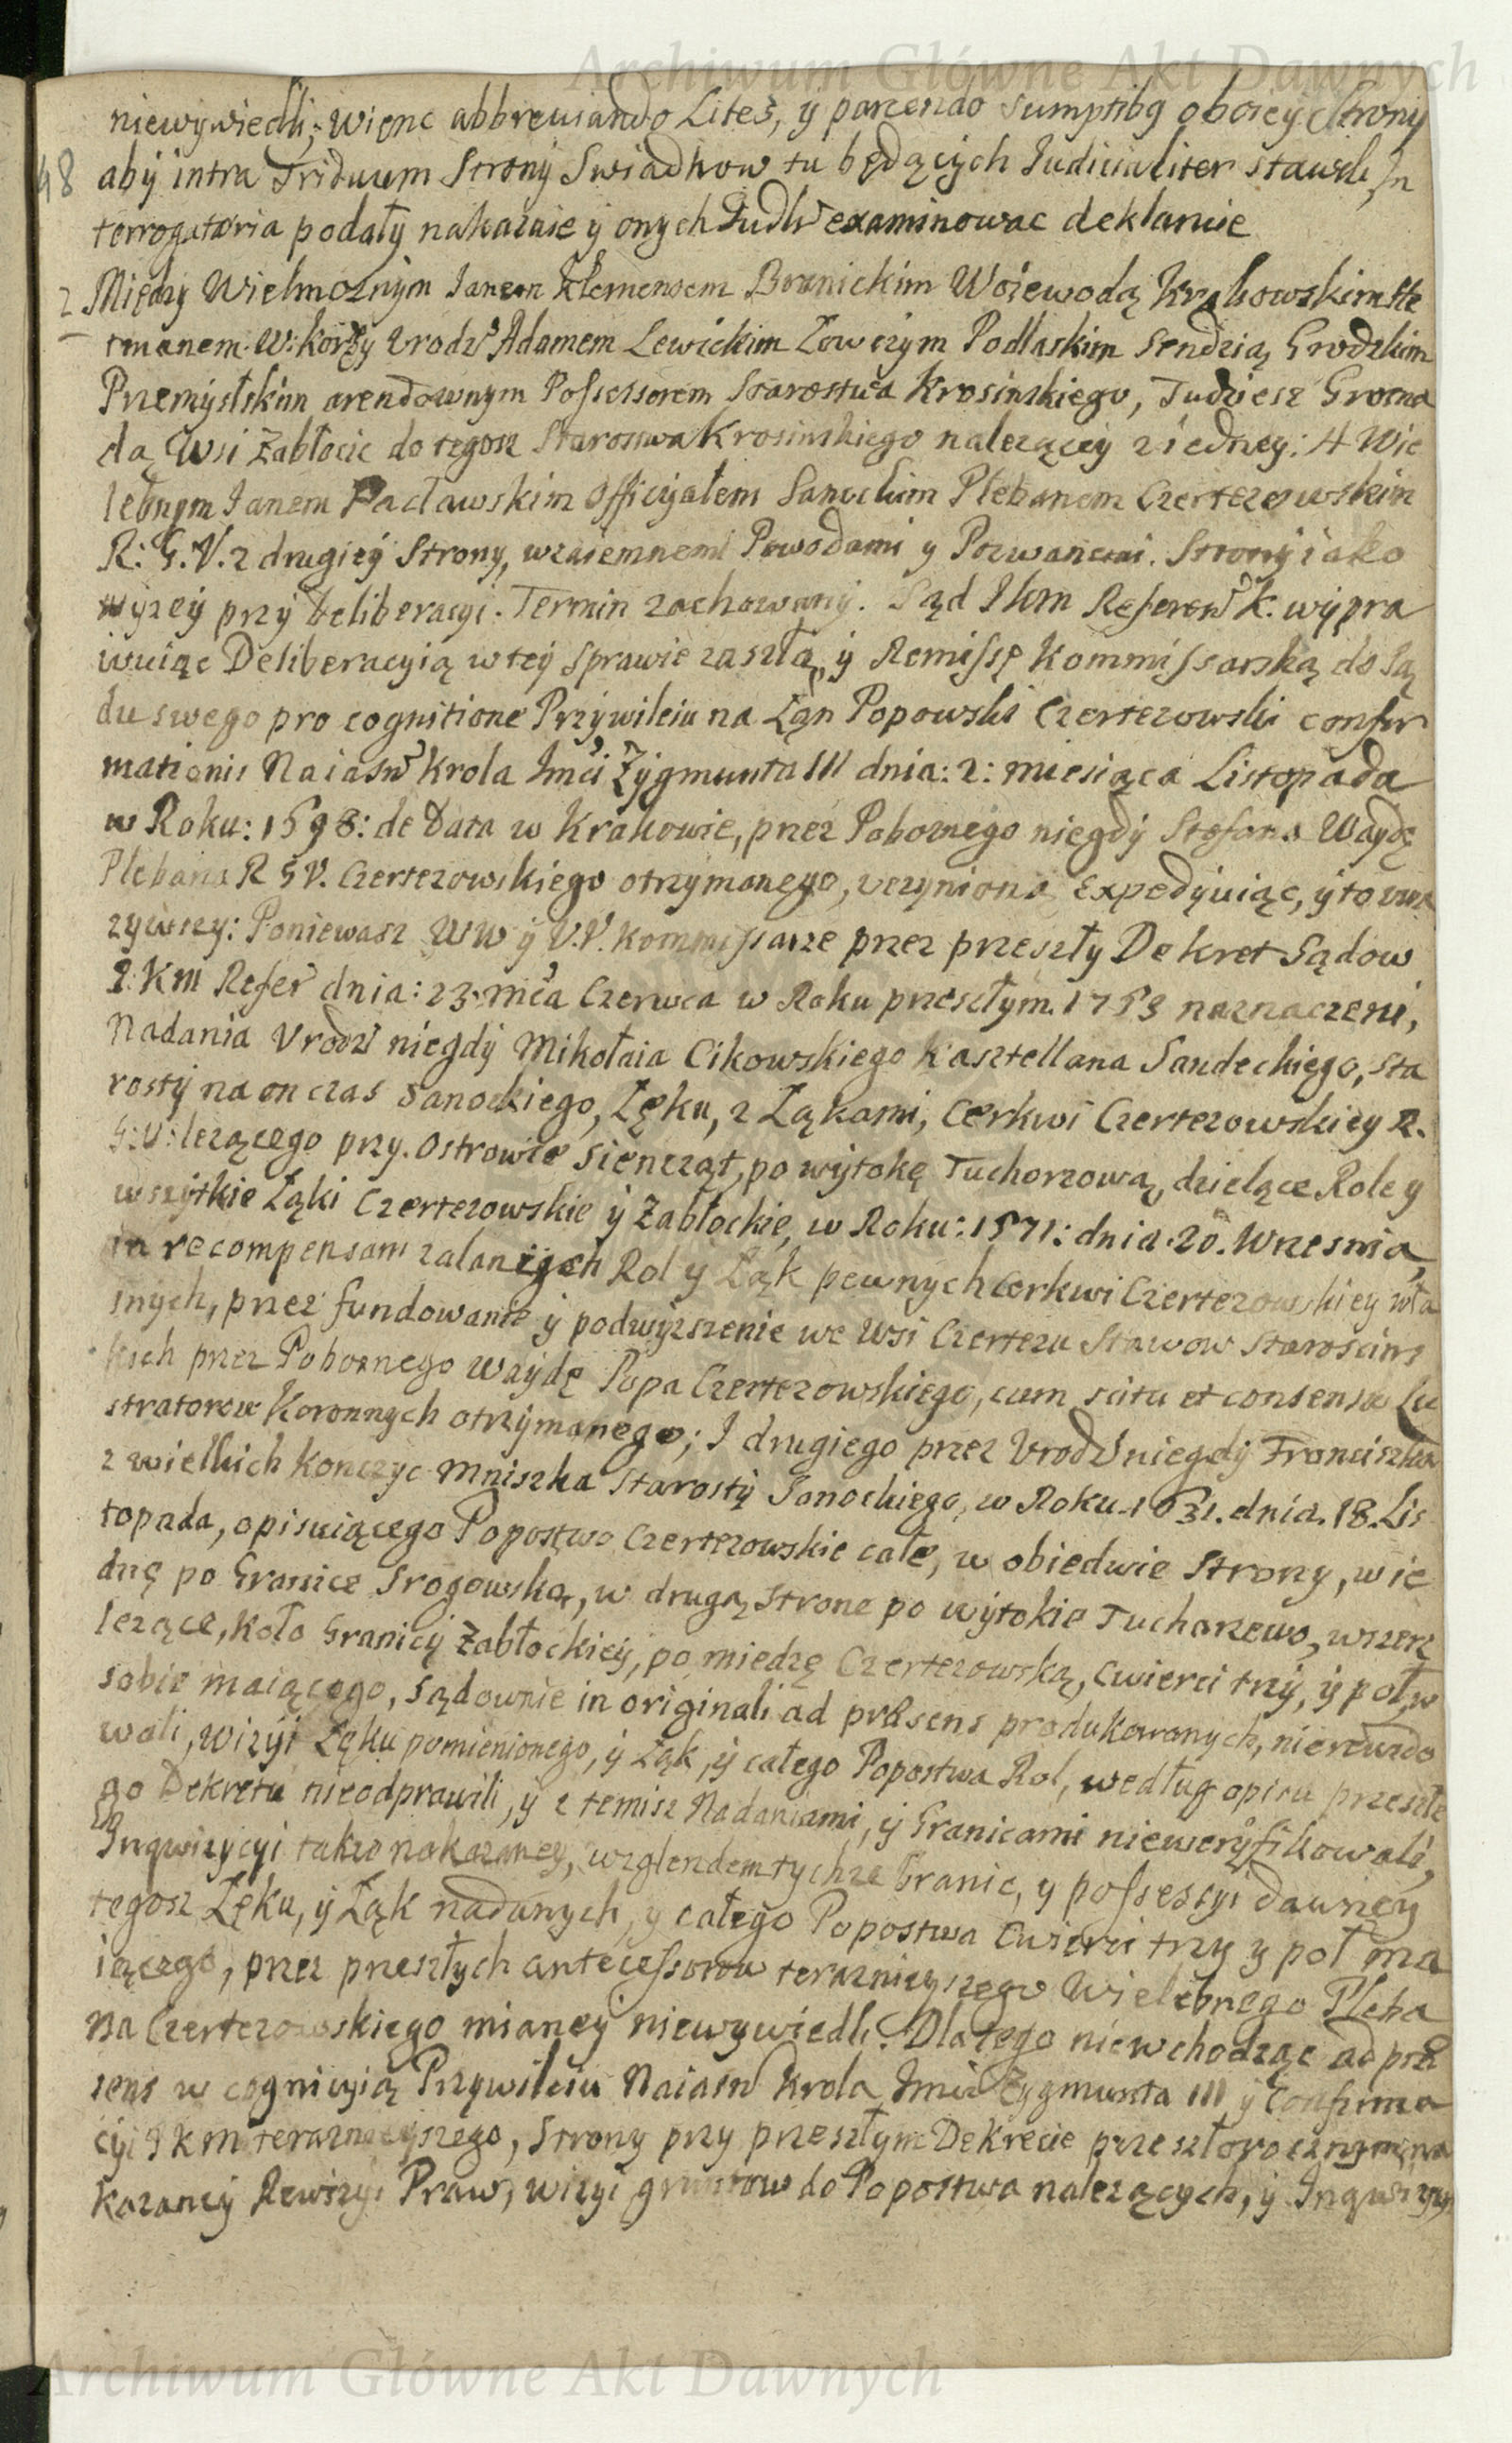 Archiwum Główne Akt Dawnych
niewywiedli; wienc abbrewiando Lites, y parcendo sumptibg oboiey Strony
48 aby intra Triduum Strony Swiadkow tu będących Iudicialiter stawili, In
terrogatoria podały nakazuie y onych Sudw examinowac deklaruie
2 Między Wielmoznym Janem Klemensem Branickim Woiewodą Krakowskim He
tmanem W: Kor: y Urodz Adamem Lewickim Łowczym Podlaskim Sendzią Grodzkim
Przemyslskim arendownym Possessorem Starostwa Krosinskiego, Tudziesz Groma
dą Wsi Zabłocic do tegosz Starostwa Krosinskiego nalezącey z iedney: A Wie
lebnym Janem Pacławskim Officyałem Sanockim Plebanem Czertezowskim
R: G. V. z drugiey Strony, wzaiemnemi Powodami y Pozwanemi. Strony iako
wyzey przy Deliberacyi. Termin zachowany. Sąd JKm Referen K. wypra
wuiąc Deliberacyią w tey sprawie zaszłą, y Remissę Kommissarską do Są
du swego pro cognitione Przywileiu na Łąn Popowski Czertezowski confir
mationis Naiasn Krola Jmci Zygmunta III dnia: 2: miesiąca Listopada
w Roku: 1598: de Data w Krakowie, przez Pobornego niegdy Stefana Waydę
Plebana R G V. Czertezowskiego otrzymanego, uczynioną Expedyuiąc, y to uwa
zywszy: Poniewasz WW y U.U. Kommissarze przez przeszły Dekret Sądow
J: Km Refer dnia: 23. mca Czerwca w Roku przeszłym. 1753 naznaczeni,
Nadania Urodz niegdy Mikołaia Cikowskiego Kasztellana Sandeckiego, Sta
rosty na on czas Sanockiego, Łęku, z Łąkami, Cerkwi Czertezowskiey R.
G: U: lezącego przy. Ostrowie Siencząt, po wytokę Tuchorzową, dzielące Role y
wszytkie Łąki Czertezowskie y Zabłockie, w Roku: 1571: dnia. 20. Wrzesnia,
in recompensam zalanych Rol y Łąk pewnych Cerkwi Czertezowskiey wła
snych, przez fundowanie y podwyzszenie we Wsi Czertezu Stawow Staroscins
kich przez Pobornego Waydę Popa Czertezowskiego, cum scitu et consensu Lu
stratorow Koronnych otrzymanego; I drugiego przez Urodz niegdy Franciszka
z wielkich Konczyc Mniszka Starosty Sanockiego, w Roku 1631. dnia. 18. Lis
topada, opisuiącego Popostwo Czertezowskie całe, w obiedwie Strony, w ie
dnę po Granice Srogowską, w drugą Strone po wytokie Tucharzewo, wszerz
lezące, koło Granicy Zabłockiey, po miedzę Czertezowską, cwierci trzy, y poł, w
sobie maiącego, sądownie in originali ad præsens produkowanych, nierewido
wali, wizyi Łęku pomienionego, y Łąk, y całego Popostwa Rol, według opisu przeszłe
go Dekretu nieodprawili, y z temisz Nadaniami, y Granicami niewerifikowali,
Inqwizycyi takze nakazaney, wzglendem tychze Granic, y possessyi dawney
tegosz Łęku, y Łąk nadanych, y całego Popostwa Cwierci trzy y poł ma
iącego, przez przeszłych antecessorow teraznieyszego Wielebnego Pleba
na Czertezowskiego mianey niewywiedli: Dlatego niewchodząc ad præ
sens w cognicyią Przywileiu Naiasn Krola Jmci Zygmunta III y Confirma
cyi JKm teraznieyszego, Strony przy przeszłym Dekrecie przeszłorocznym, na
kazaney Rewizyi Praw, wizyi gruntow do Popostwa nalezących, y Inqwizycy
Archiwum Główne Akt Dawnych